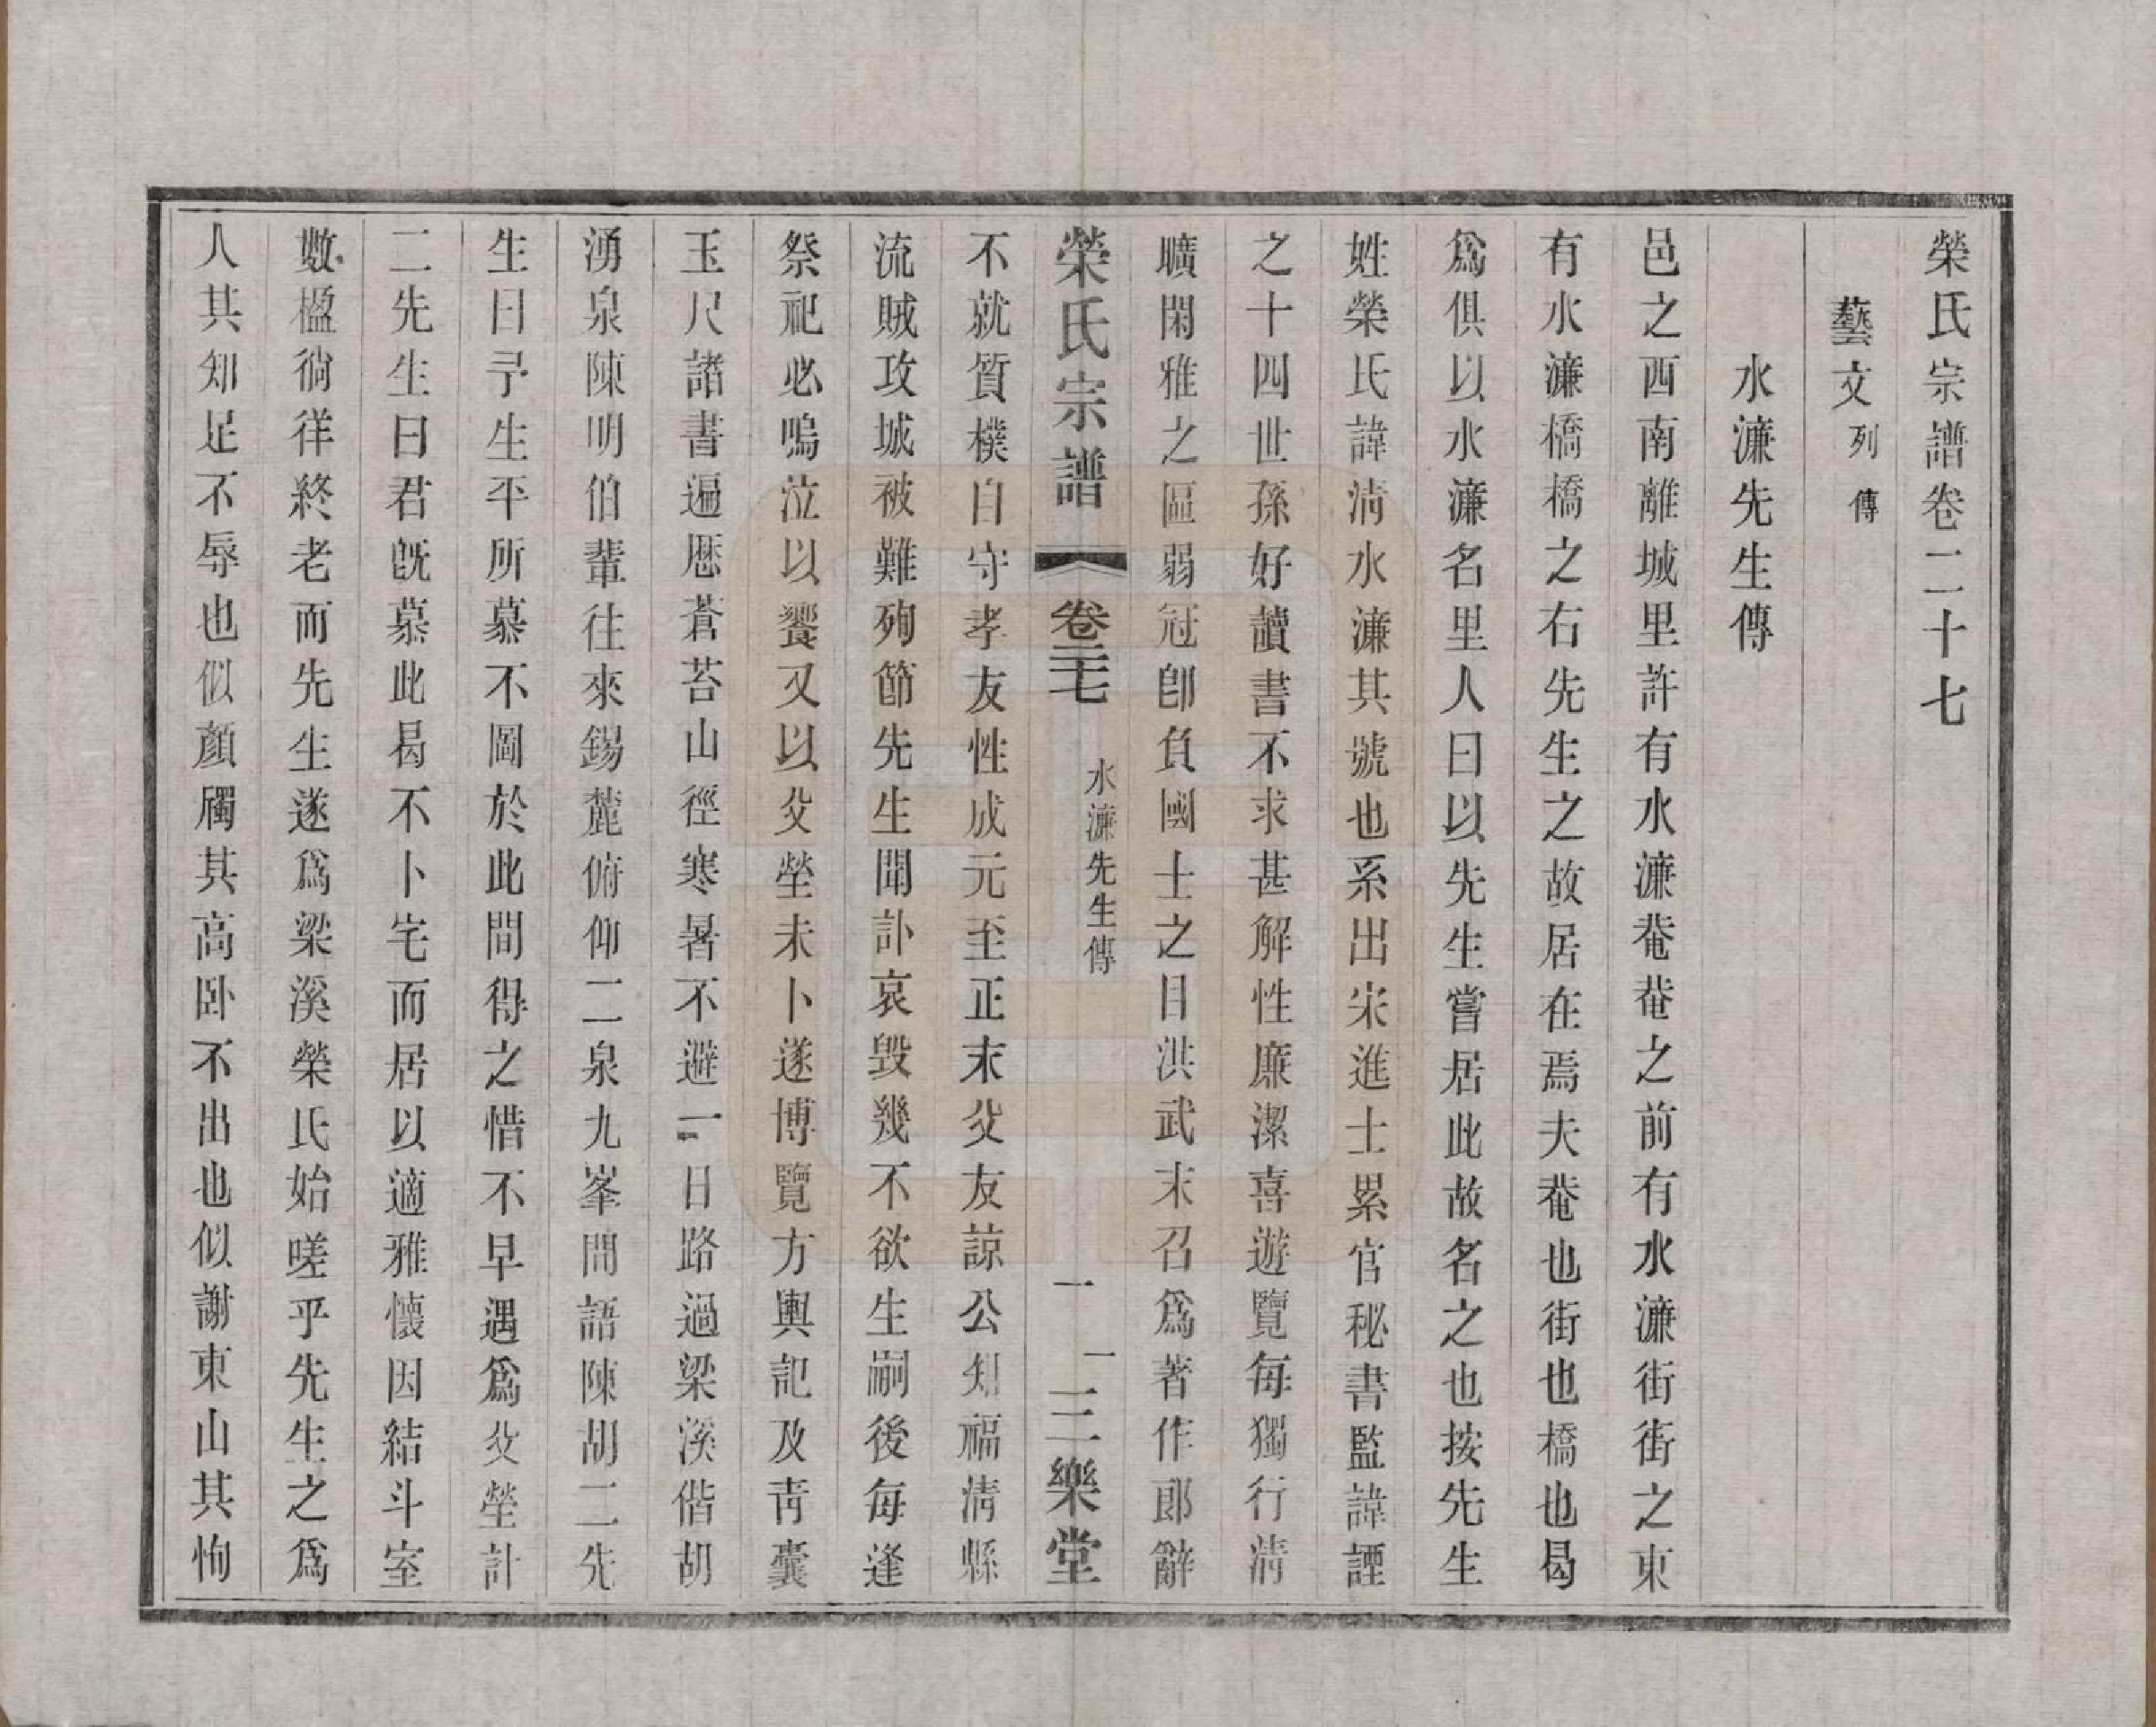 榮氏宗譜卷二十七
藝文列傳
水濂先生傳
邑之西南離城里許有水濂菴菴之前有水濂街街之東
有水濂橋橋之右先生之故居在焉夫菴也街也橋也曷
爲俱以水濂名里人曰以先生嘗居此故名之也按先生
姓榮氏諱淸水濂其號也系出宋進士累官秘書監諱諲
之十四世孫好讀書不求甚解性廉潔喜遊覽每獨行淸
曠閑雅之區弱冠卽負國士之目洪武末召爲著作郎辭
榮氏宗譜 卷二十七 水濂先生傳 一 一 三樂堂
不就質樸自守孝友性成元至正末父友諒公知福淸縣
流賊攻城被難殉節先生聞訃哀毀幾不欲生嗣後每逢
祭祀必嗚泣以饗又以父塋未卜遂博覽方輿記及靑囊
玉尺諸書遍歷蒼苔山徑寒暑不避一日路過梁溪偕胡
湧泉陳明伯輩往來錫麓俯仰二泉九峯間語陳胡二先
生曰予生平所慕不圖於此間得之惜不早遇爲父塋計
二先生曰君旣慕此曷不卜宅而居以適雅懷因結斗室
數楹徜徉終老而先生遂爲梁溪榮氏始嗟乎先生之爲
人其知足不辱也似顏斶其高卧不出也似謝東山其恂